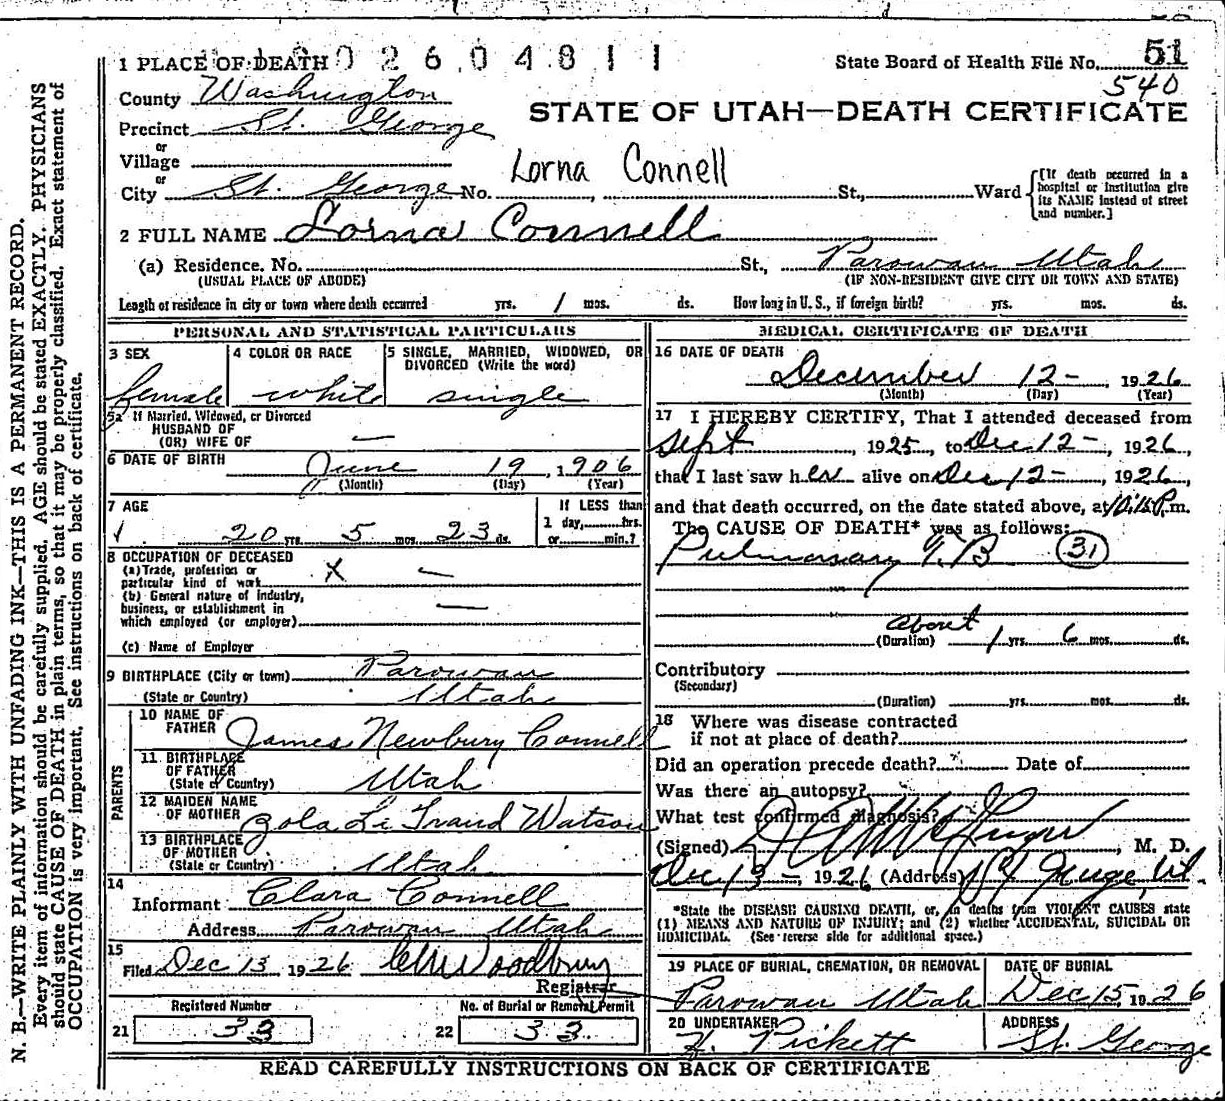 51
1 PLACE OF DEATH 0 2 6 0 4 8 1 1 State Board of Health File No.
540
County Washington
STATE OF UTAH—DEATH CERTIFICATE
Precinct St. George
or
Village
Lorna Connell
or
City St. George No. , St., Ward
[If death occurred in a hospital or institution give its NAME instead of street and number.]
2 FULL NAME Lorna Connell
(a) Residence. No. St., Parowan Utah
(USUAL PLACE OF ABODE) (IF NON-RESIDENT GIVE CITY OR TOWN AND STATE)
Length of residence in city or town where death occurred yrs. 1 mos. ds. How long in U. S., if foreign birth? yrs. mos. ds.
PERSONAL AND STATISTICAL PARTICULARS
3 SEX
female
4 COLOR OR RACE
white
5 SINGLE, MARRIED, WIDOWED, OR DIVORCED (Write the word)
single
5a If Married, Widowed, or Divorced
HUSBAND OF
(OR) WIFE OF —
6 DATE OF BIRTH June 19, 1906
(Month) (Day) (Year)
7 AGE
20 yrs. 5 mos. 23 ds.
If LESS than
1 day, hrs.
or min.?
8 OCCUPATION OF DECEASED
(a) Trade, profession or
particular kind of work X —
(b) General nature of industry,
business, or establishment in
which employed (or employer) —
(c) Name of Employer
9 BIRTHPLACE (City or town) Parowan
(State or Country) Utah
PARENTS
10 NAME OF
FATHER James Newbury Connell
11 BIRTHPLACE
OF FATHER
(State or Country) Utah
12 MAIDEN NAME
OF MOTHER Zola Watson
13 BIRTHPLACE
OF MOTHER
(State or Country) Utah
14
Informant Clara Connell
Address Parowan Utah
15
Filed Dec 13 1926 Woodbury
Registrar
Registered Number No. of Burial or Removal Permit
21 33 22 33
MEDICAL CERTIFICATE OF DEATH
16 DATE OF DEATH
December 12-, 1926
(Month) (Day) (Year)
17 I HEREBY CERTIFY, That I attended deceased from
Sept, 1925, to Dec 12-, 1926,
that I last saw her alive on Dec 12-, 1926,
and that death occurred, on the date stated above, at P.m.
The CAUSE OF DEATH* was as follows:
Pulmonary T.B. 31
about
(Duration) 1 yrs. 6 mos. ds.
Contributory
(Secondary)
(Duration) yrs. mos. ds.
18 Where was disease contracted
if not at place of death?
Did an operation precede death? Date of
Was there an autopsy?
What test confirmed diagnosis?
(Signed) , M. D.
Dec 13-, 1926 (Address) St George, Ut.
*State the DISEASE CAUSING DEATH, or, in deaths from VIOLENT CAUSES state
(1) MEANS AND NATURE OF INJURY; and (2) whether ACCIDENTAL, SUICIDAL OR
HOMICIDAL. (See reverse side for additional space.)
19 PLACE OF BURIAL, CREMATION, OR REMOVAL
Parowan Utah
DATE OF BURIAL
Dec 15, 1926
20 UNDERTAKER
H. Pickett
ADDRESS
St. George
READ CAREFULLY INSTRUCTIONS ON BACK OF CERTIFICATE
N. B.—WRITE PLAINLY WITH UNFADING INK—THIS IS A PERMANENT RECORD.
Every item of information should be carefully supplied. AGE should be stated EXACTLY. PHYSICIANS
should state CAUSE OF DEATH in plain terms, so that it may be properly classified. Exact statement of
OCCUPATION is very important. See instructions on back of certificate.